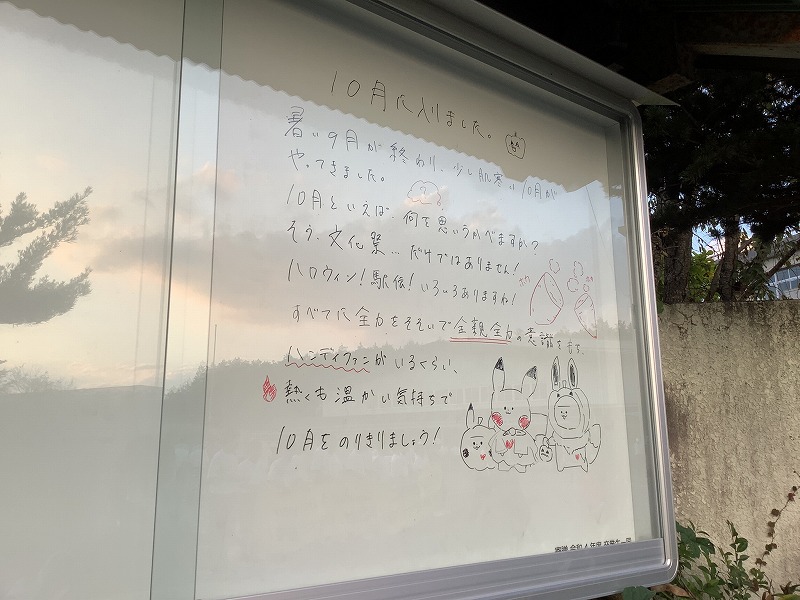 10月に入りました。
暑い9月が終わり、少し肌寒い10月が
やってきました。
10月といえば、何を思いうかべますか？
そう、文化祭…だけではありません！
ハロウィン！駅伝！いろいろありますね！
すべてに全力をそそいで全観全力の意識をもち、
ハンディファンがいるくらい、
熱くも温かい気持ちで
10月をのりきりましょう！
寄贈 令和4年度 卒業生一同